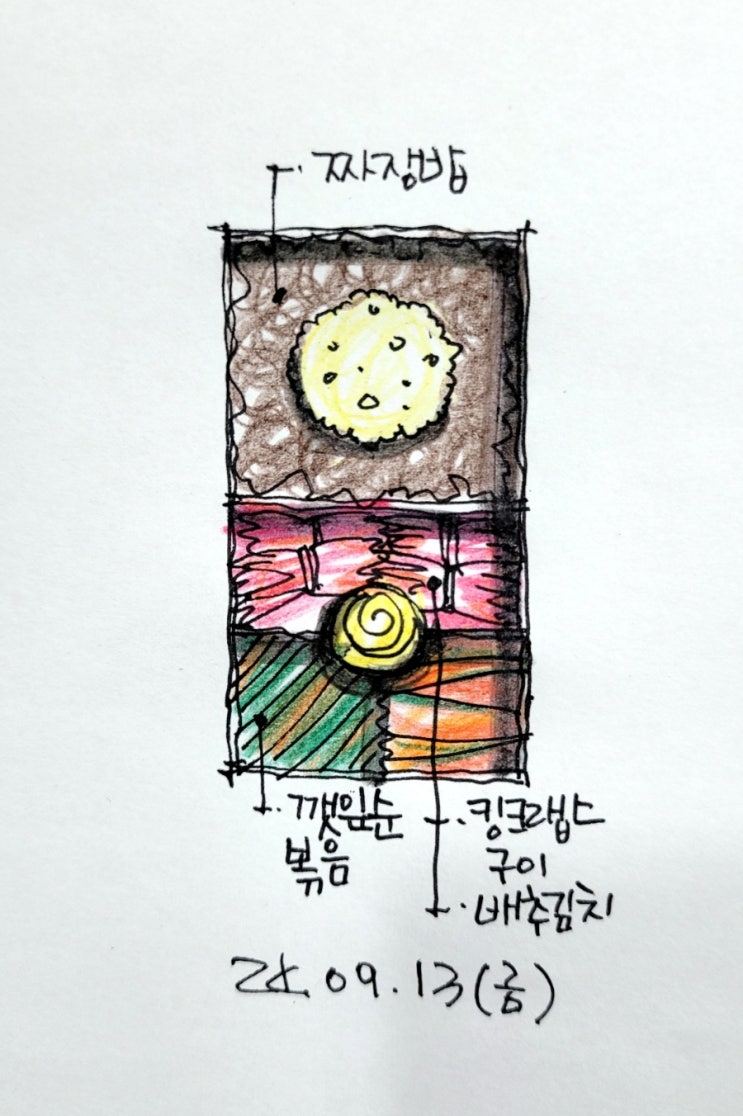 짜장밥
깻잎순
볶음
킹크랩스
구이
배추김치
24.09.13(금)